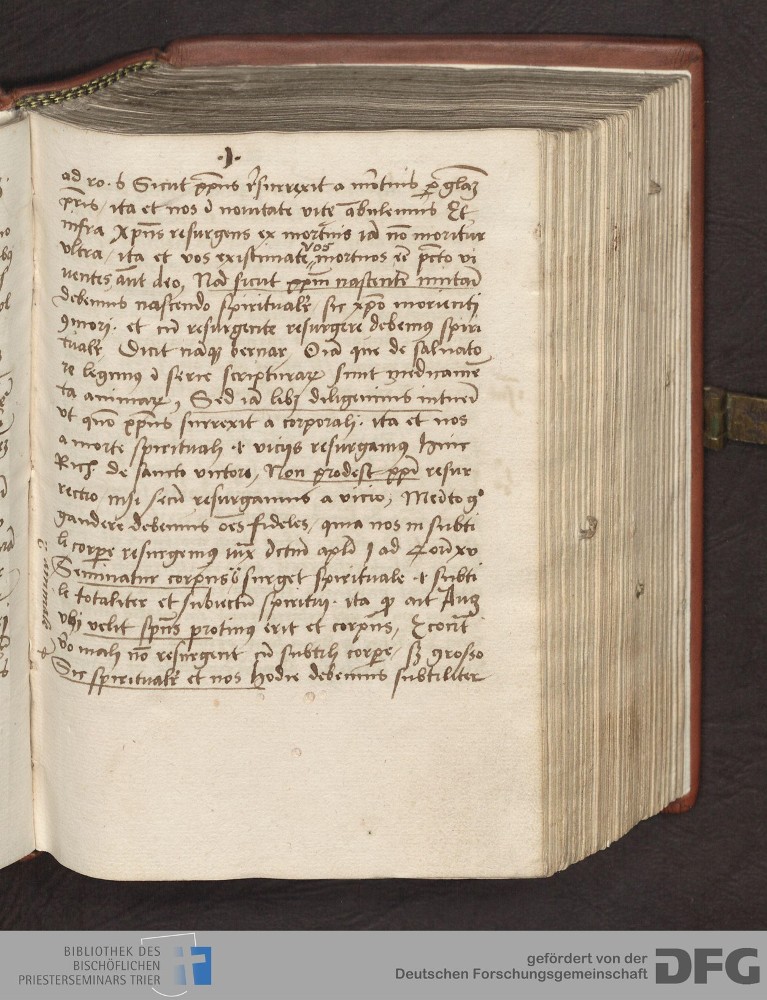 ·J·
ad ro. 6 Sicut xp̄us resurrexit a mortuis p glaʒ
pris / ita et nos ī nouitate vite ābulemus Et
infra Xp̄us resurgens ex mortuis iā nō moritur
vltra / ita et vos existimate vos mortuos eē pctō vi
uentes aūt deo, Nā sicut xp̄m nascentē imitari
debemus nascendo spiritualr, sic xp̄o morienti
ꝯmori · et cū resurgente resurgere debemꝰ spiri
tualr Dicit nāqꝫ bernar Oīa que de saluato
re legimus ī serie scripturarꝝ sunt medicamē
ta animarꝝ, Sed iā diligenius intueri
vt quō xp̄us surrexit a corporali · ita et nos
a morte spirituali et viciis resurgamꝰ hinc
Rich de sancto victore, Non prodest xp̄i resur
rectio nisi secū resurgamus a vicio, Merito gͦ
gaudere debemus oēs fideles, quia nos in subti
li corpe resurgemꝰ iux dictū apli J ad Corī xv
Seminatur corpus surget spirituale et subti
le totaliter et subiectū spiritui · ita qͩ ait Aug
vbi velit spūs protinꝰ erit et corpus, Ecōt
vͦo mali nō resurgent cū subtili corpe, sꝫ grosso
Sic spiritualr et nos hodie debemus subtiliter
animale
BIBLIOTHEK DES
BISCHÖFLICHEN
PRIESTERSEMINARS TRIER
gefördert von der
Deutschen Forschungsgemeinschaft
DFG